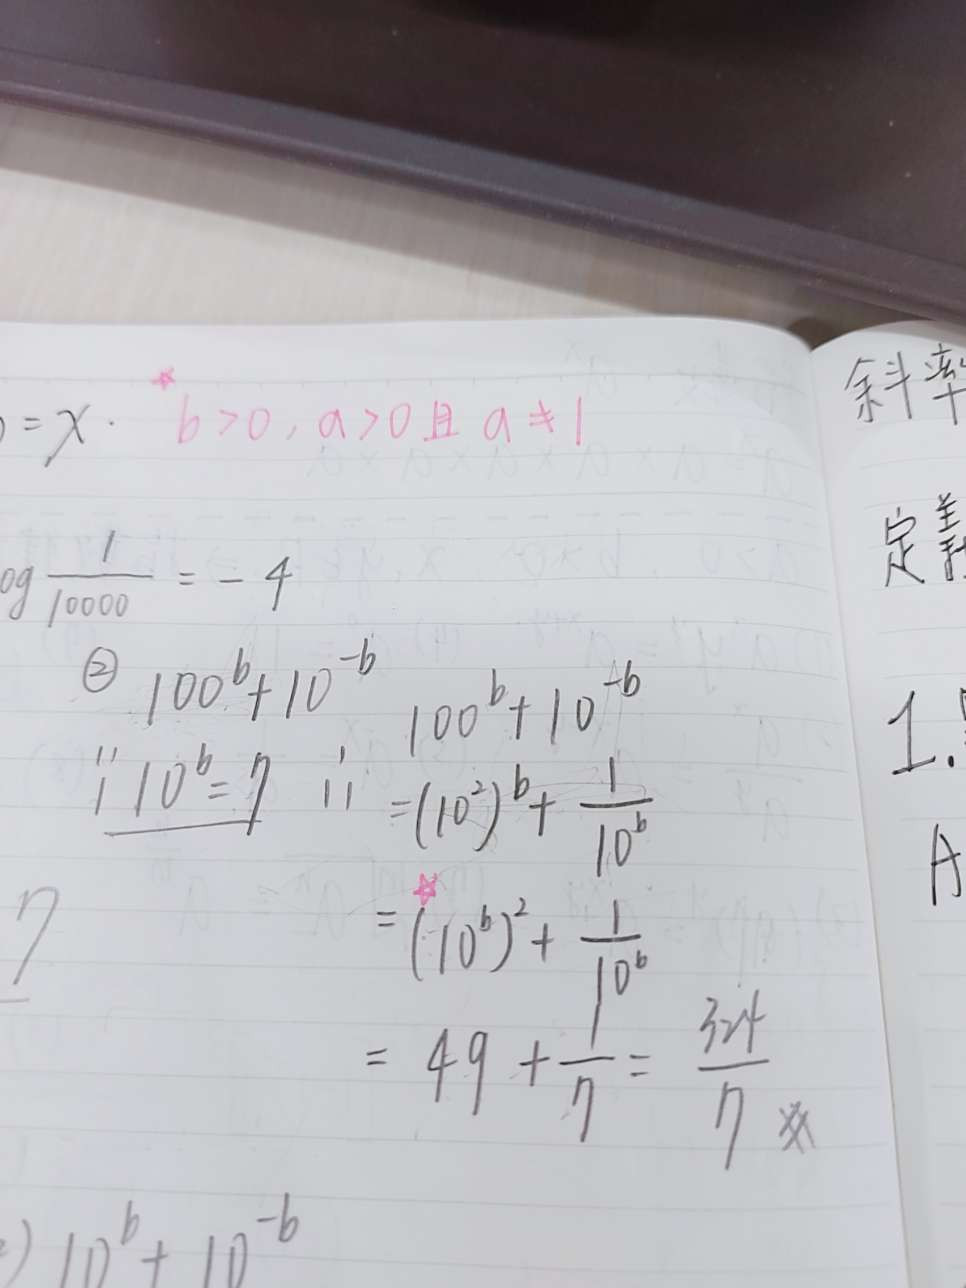 ) = x . ★ b > 0 , a > 0 且 a ≠ 1
og 1/10000 = - 4
② 100^b + 10^-b
∵ 10^b = 7 ∴
7
100^b + 10^-b
= (10^2)^b + 1/10^b
☆
= (10^b)^2 + 1/10^b
= 49 + 1/7 = 324/7 ※
) 10^b + 10^-b
斜率
定義
1.
A